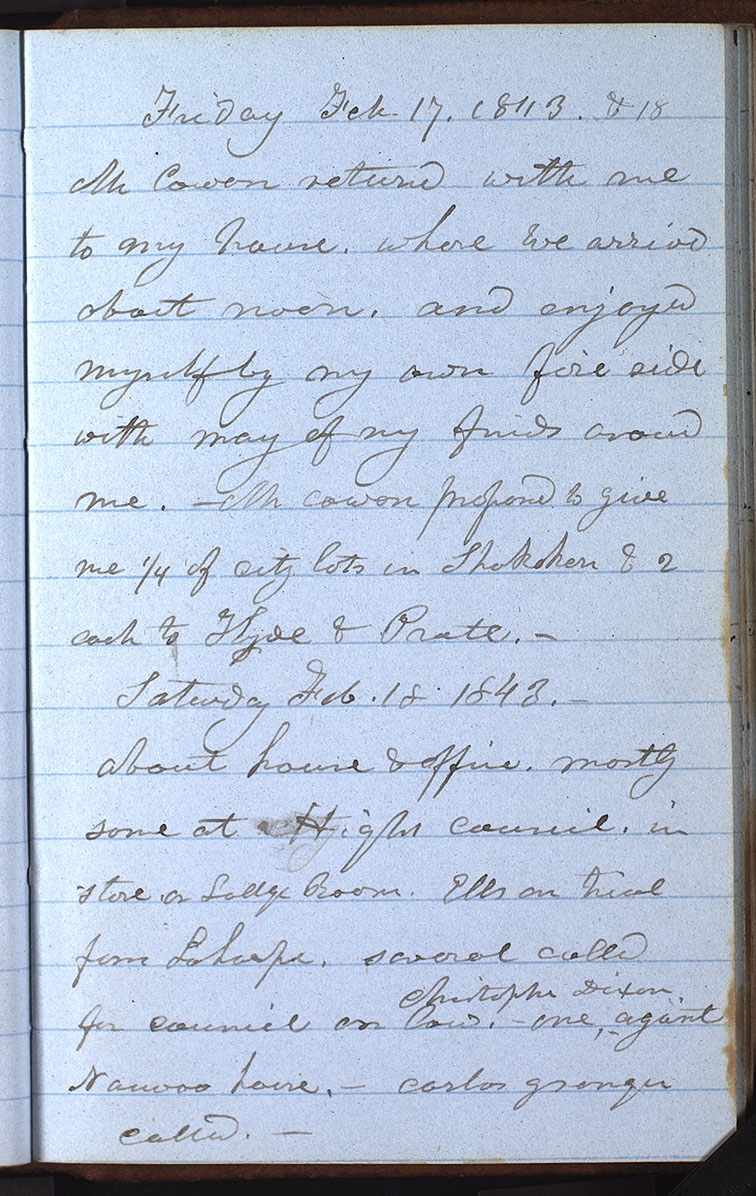 Friday Feb 17. 1843. & 18
Mr Cowan returnd with me
to my house. where we arrivd
about noon. and enjoyed
myself by my own fire side
with may of my friends around
me. — Mr cowan proposed to give
me 1/4 of city lots in Shokokon & 2
each to Hyde & Pratt. —
Saturday Feb. 18. 1843. —
about house & office. mostly
some at High council. in
store or Lodge Room. Ells on trial
from Laharpe. several called
christopher Dixon.
for council on law. — one, agant
Nauvoo house. — carlos granger
called. —